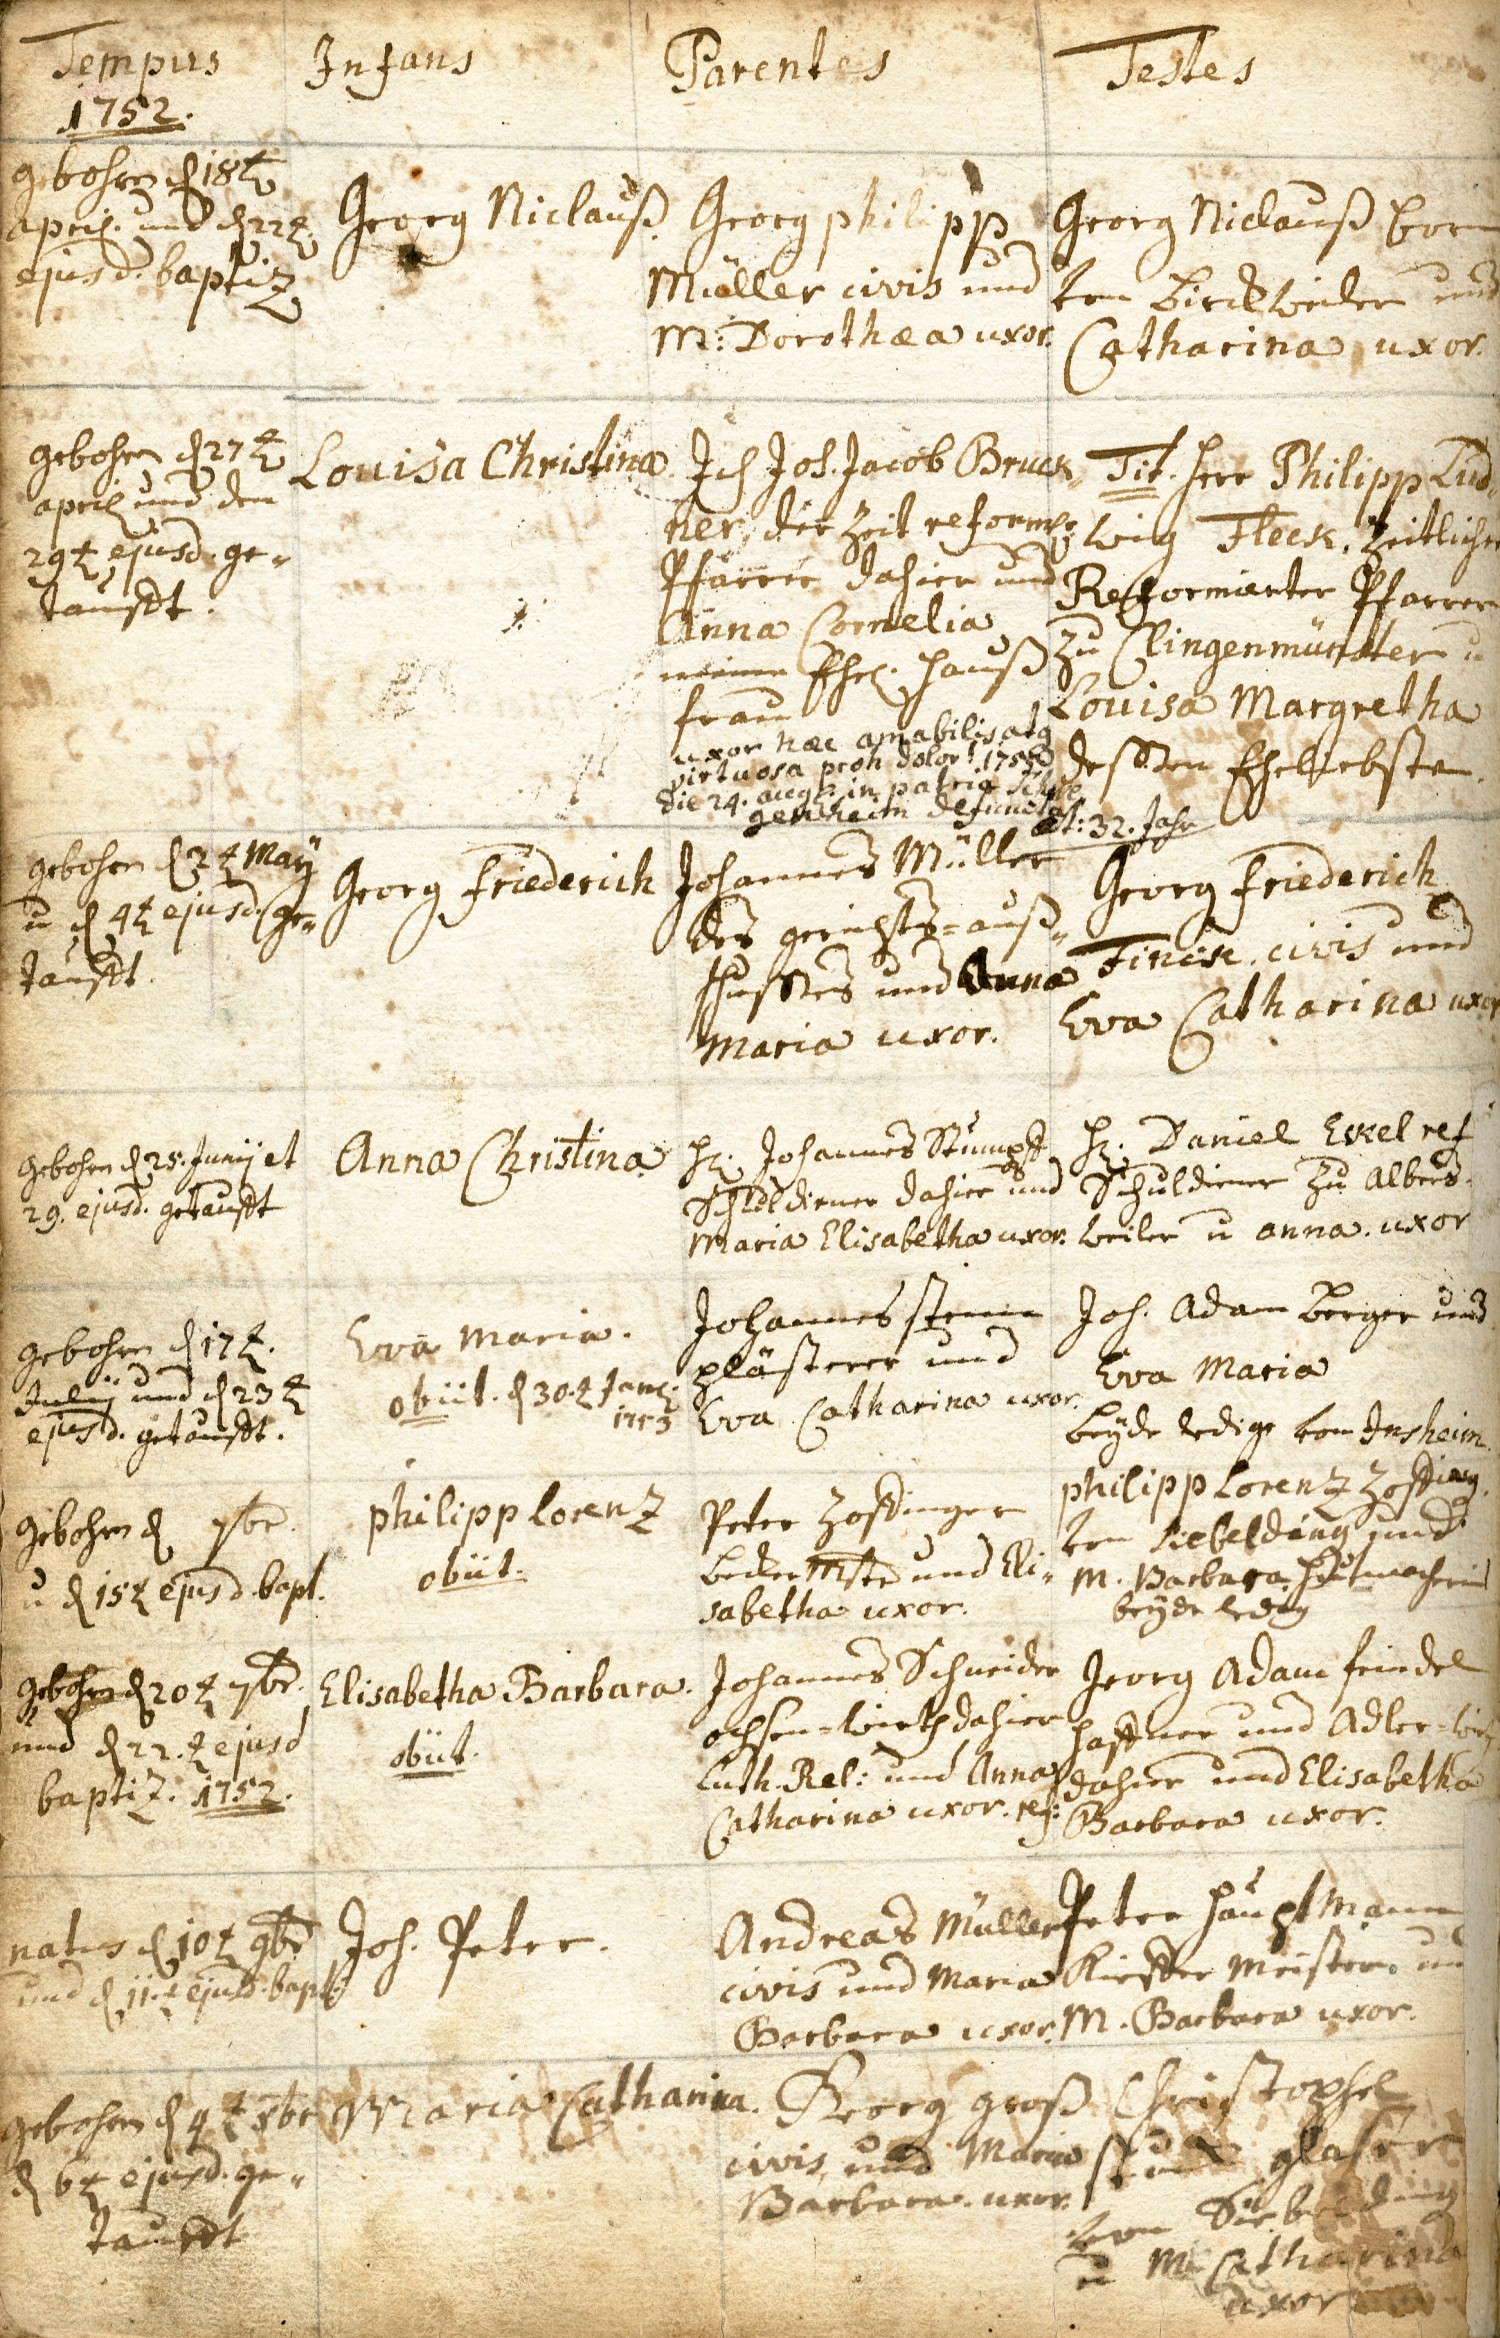 Tempus Infans Parentes Testes
1752.
gebohren d 18t
april. und d 22t.
ejusd. baptiz
Georg Niclauß.
Georg philipp
Müller civis und
M: Dorothea uxor.
Georg Niclauß
von Birckweiler und
Catharina uxor.
gebohren d 27t
april und den
29t ejusd. ge-
taufft.
Louisa Christina.
Ich Joh. Jacob Bruck-
ner, der Zeit reform:
Pfarrer dahier und
Anna Cornelia
meine Ehel. Hauß
frau
uxor hæc amabilis atq
virtuosa proh dolor! 1755
die 24. aug: in patria
genheim defuncta
æt: 32. Jahr
Tit. Herr Philipp Lud-
wig Fleck. Zeitlicher
Reformierter Pfarrer
zu Clingenmünster u
Louisa Margretha
dessen Eheliebste.
gebohren d 2t May
u d 4t ejusd. ge-
taufft.
Georg Friederich
Johannes Müller
des gerichts-auß-
schusses und Anna
Maria uxor.
Georg Friederich
Finck. civis und
Eva Catharina uxor
gebohren d 25. Junij et
29. ejusd. getaufft
Anna Christina
Hr. Johannes Stumpff
Schuldiener dahier und
Maria Elisabetha uxor.
Hr. Daniel Eckel ref
Schuldiener zu Albers-
weiler u anna. uxor
gebohren d 17t.
Julij und d 23t
ejusd. getaufft.
Eva Maria.
obiit. d 30t Jan:
1753
Johannes stein
plästerer und
Eva Catharina uxor.
Joh. Adam Berger und
Eva Maria
beyde ledige von Insheim.
gebohren d 7br.
u d 15t ejusd. bapt.
philipp Lorenz
obiit.
Peter Zoffinger
becker Mstr und Eli-
sabetha uxor.
philipp Lorenz Zoffing.
von siebelding und
M. Barbara Hutmacherin
beyde ledig
gebohren d 20t 7br.
und d 22.t ejusd
baptiz. 1752.
Elisabetha Barbara.
obiit.
Johannes Schneider
ochsen-wirth dahier
Luth. Rel: und Anna
Catharina uxor. ref:
Georg Adam feindel
haffner und Adler-wirth
dahier und Elisabetha
Barbara uxor.
natus d 10t 9br
und d 11.t ejusd. bapt:
Joh. Peter.
Andreas Müller
civis und Maria
Barbara uxor.
Peter Hauptmann
Kieffer Meister und
M. Barbara uxor.
gebohren d 4t xbr
d 6t ejusd. ge-
taufft
Maria Catharina.
Georg groß
civis und Maria
Barbara. uxor.
Christophel
glaser
von Siebelding
u M. Catharina
uxor